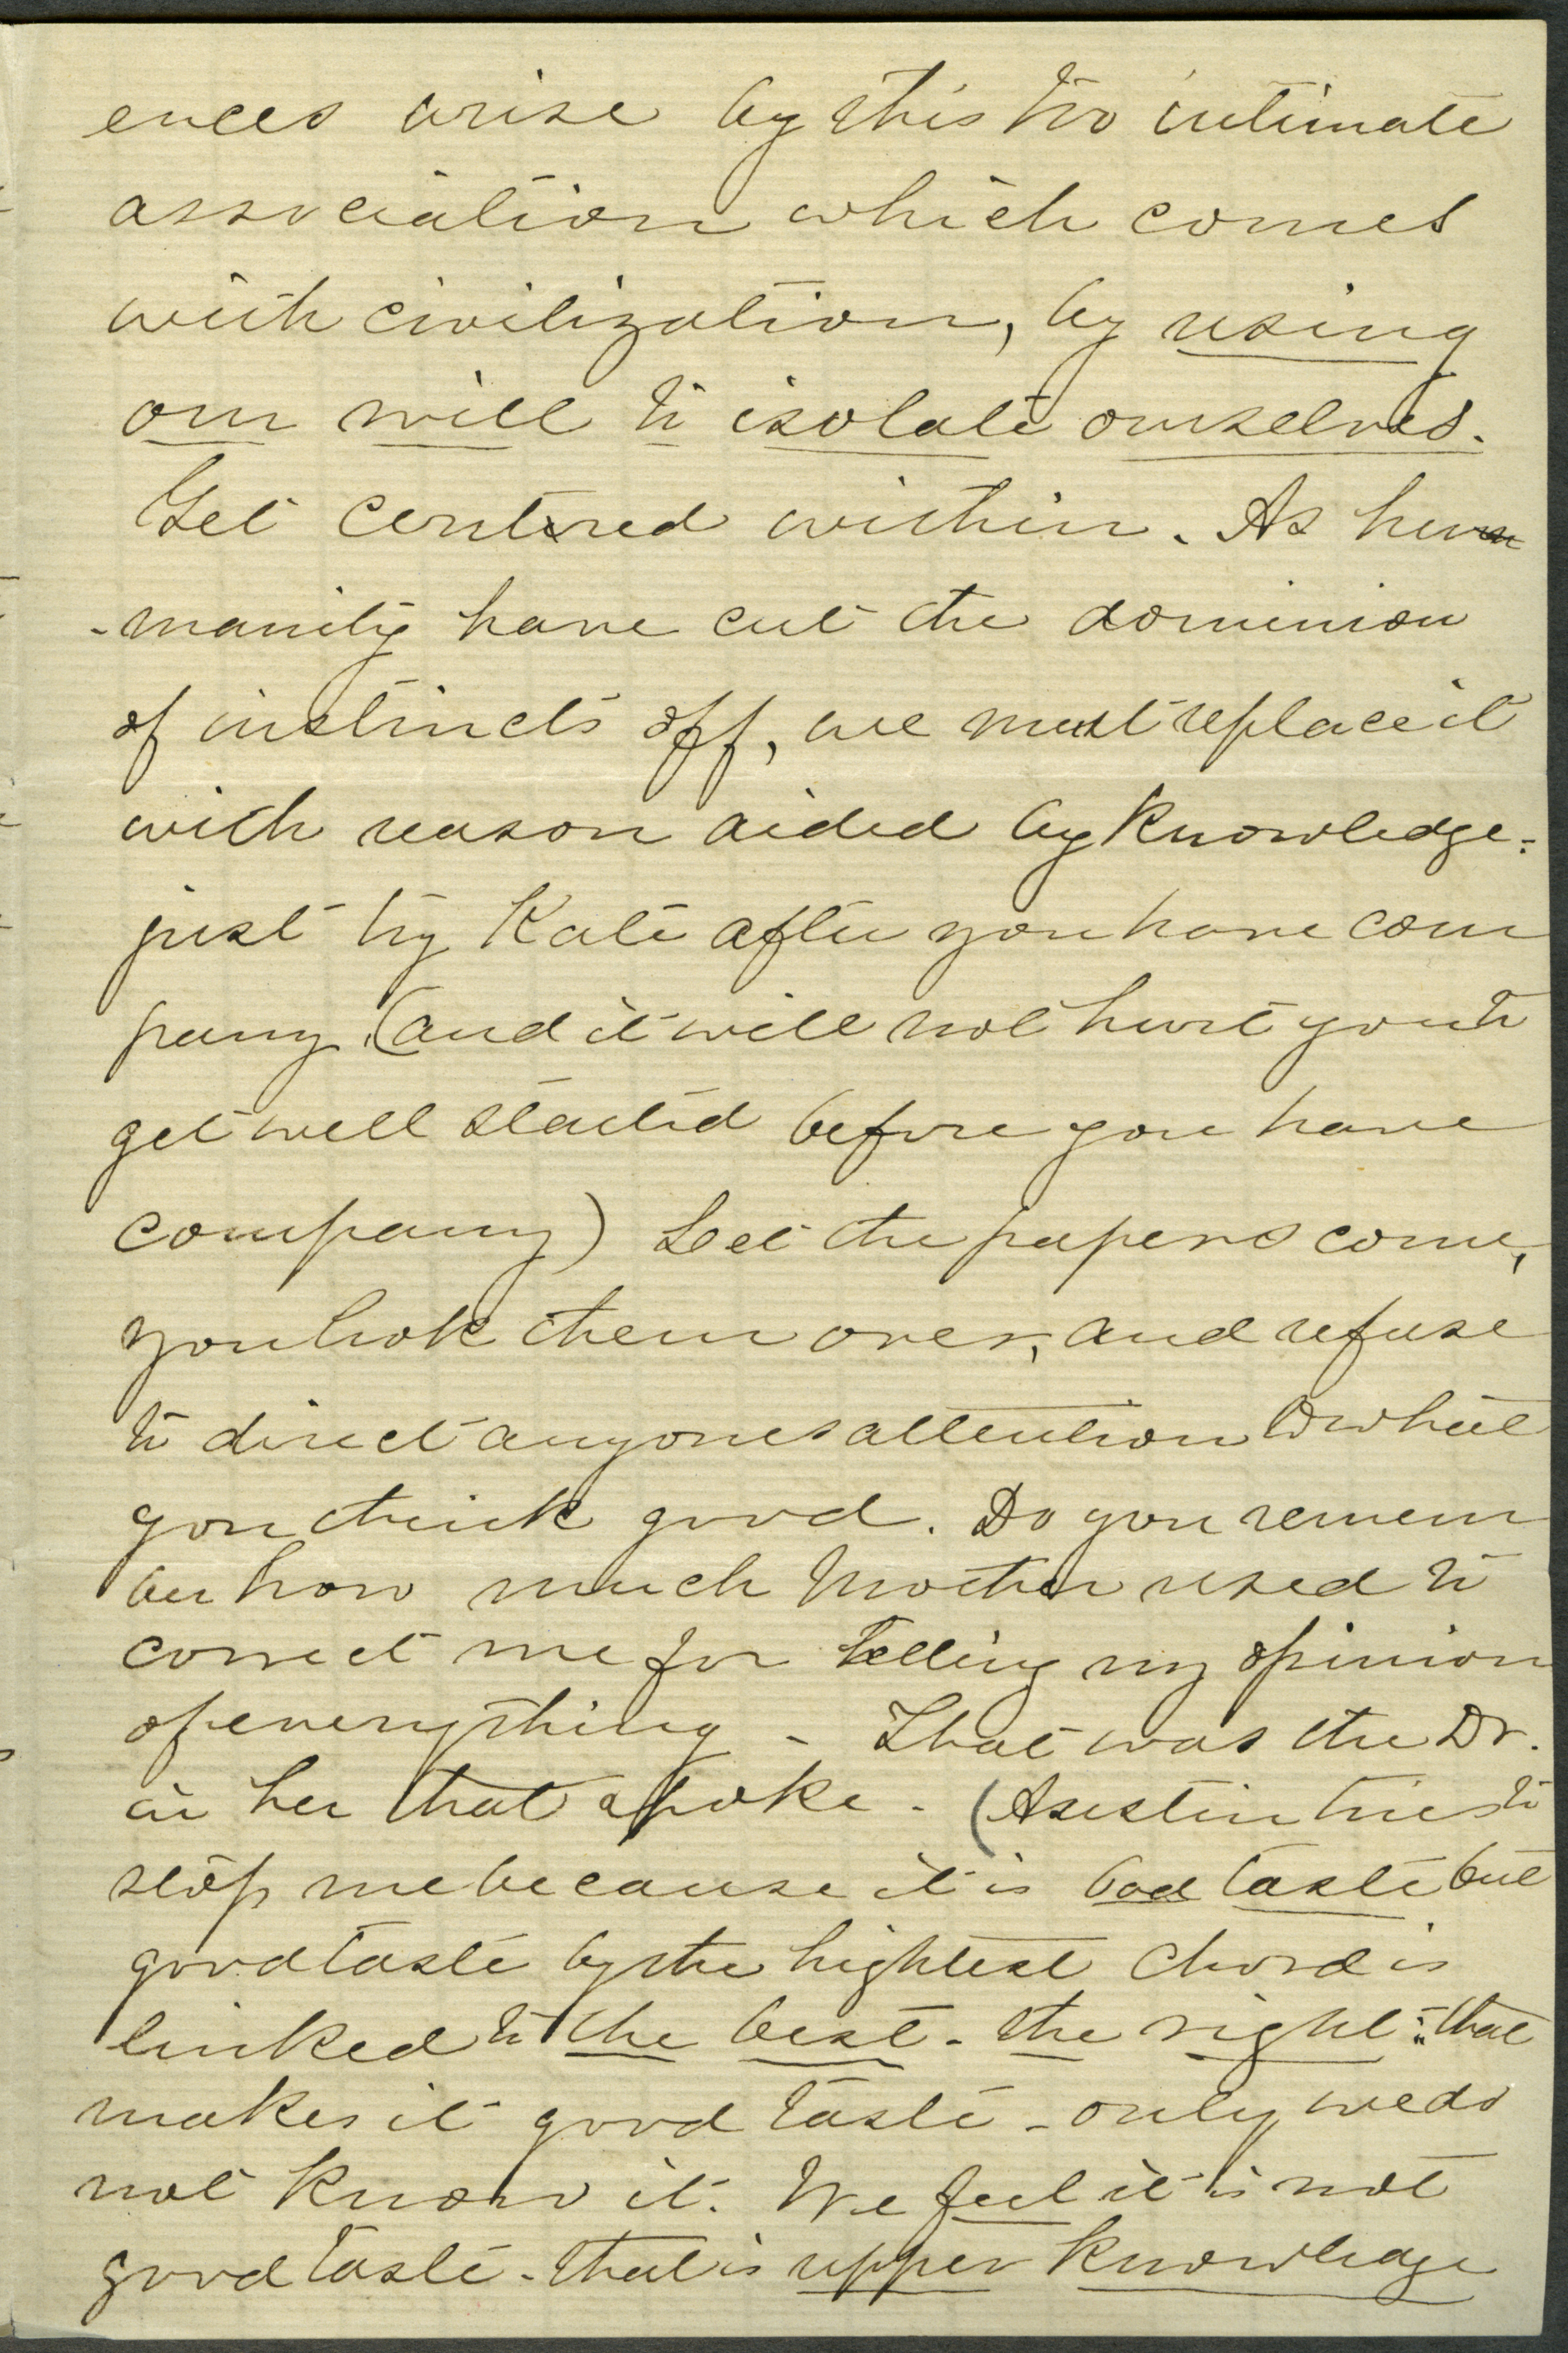 ences arise by this too intimate
association which comes
with civilization, by using
our will to isolate ourselves.
Get centered within. As hu
-manity have cut the dominion
of instincts off, we must replace it
with reason aided by knowledge.
just try Kate after you have com
pany (and it will not hurt you to
get well started before you have
company) Let the papers come,
you look them over, and refuse
to direct anyones attention to what
you think good. Do you remem
ber how much Mother used to
correct me for telling my opinion
of everything - That was the Dr.
in her that spoke - (Austin tries to
stop me because it is bad taste but
good taste by the hightest chord is
linked to the best - the right: that
makes it good taste - only we do
not know it. We feel it is not
good taste - that is upper knowledge